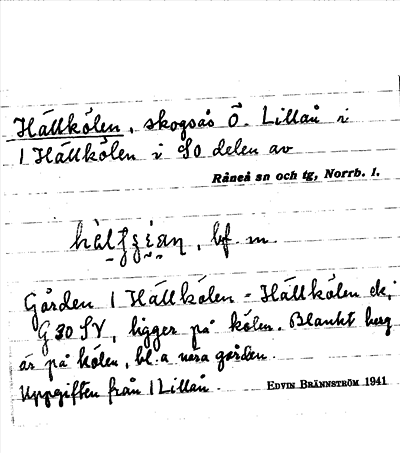 Hällkölen, skogsås Ö. Lillån i
1 Hällkölen i SO delen av
Råneå sn och tg, Norrb. l.
bf. m
Gården 1 Hällkölen = Hällkölen ek,
G 30 SV, ligger på kölen. Blankt berg
är på kölen, bl. a nära gården.
Uppgiften från 1 Lillån.
EDVIN BRÄNNSTRÖM 1941